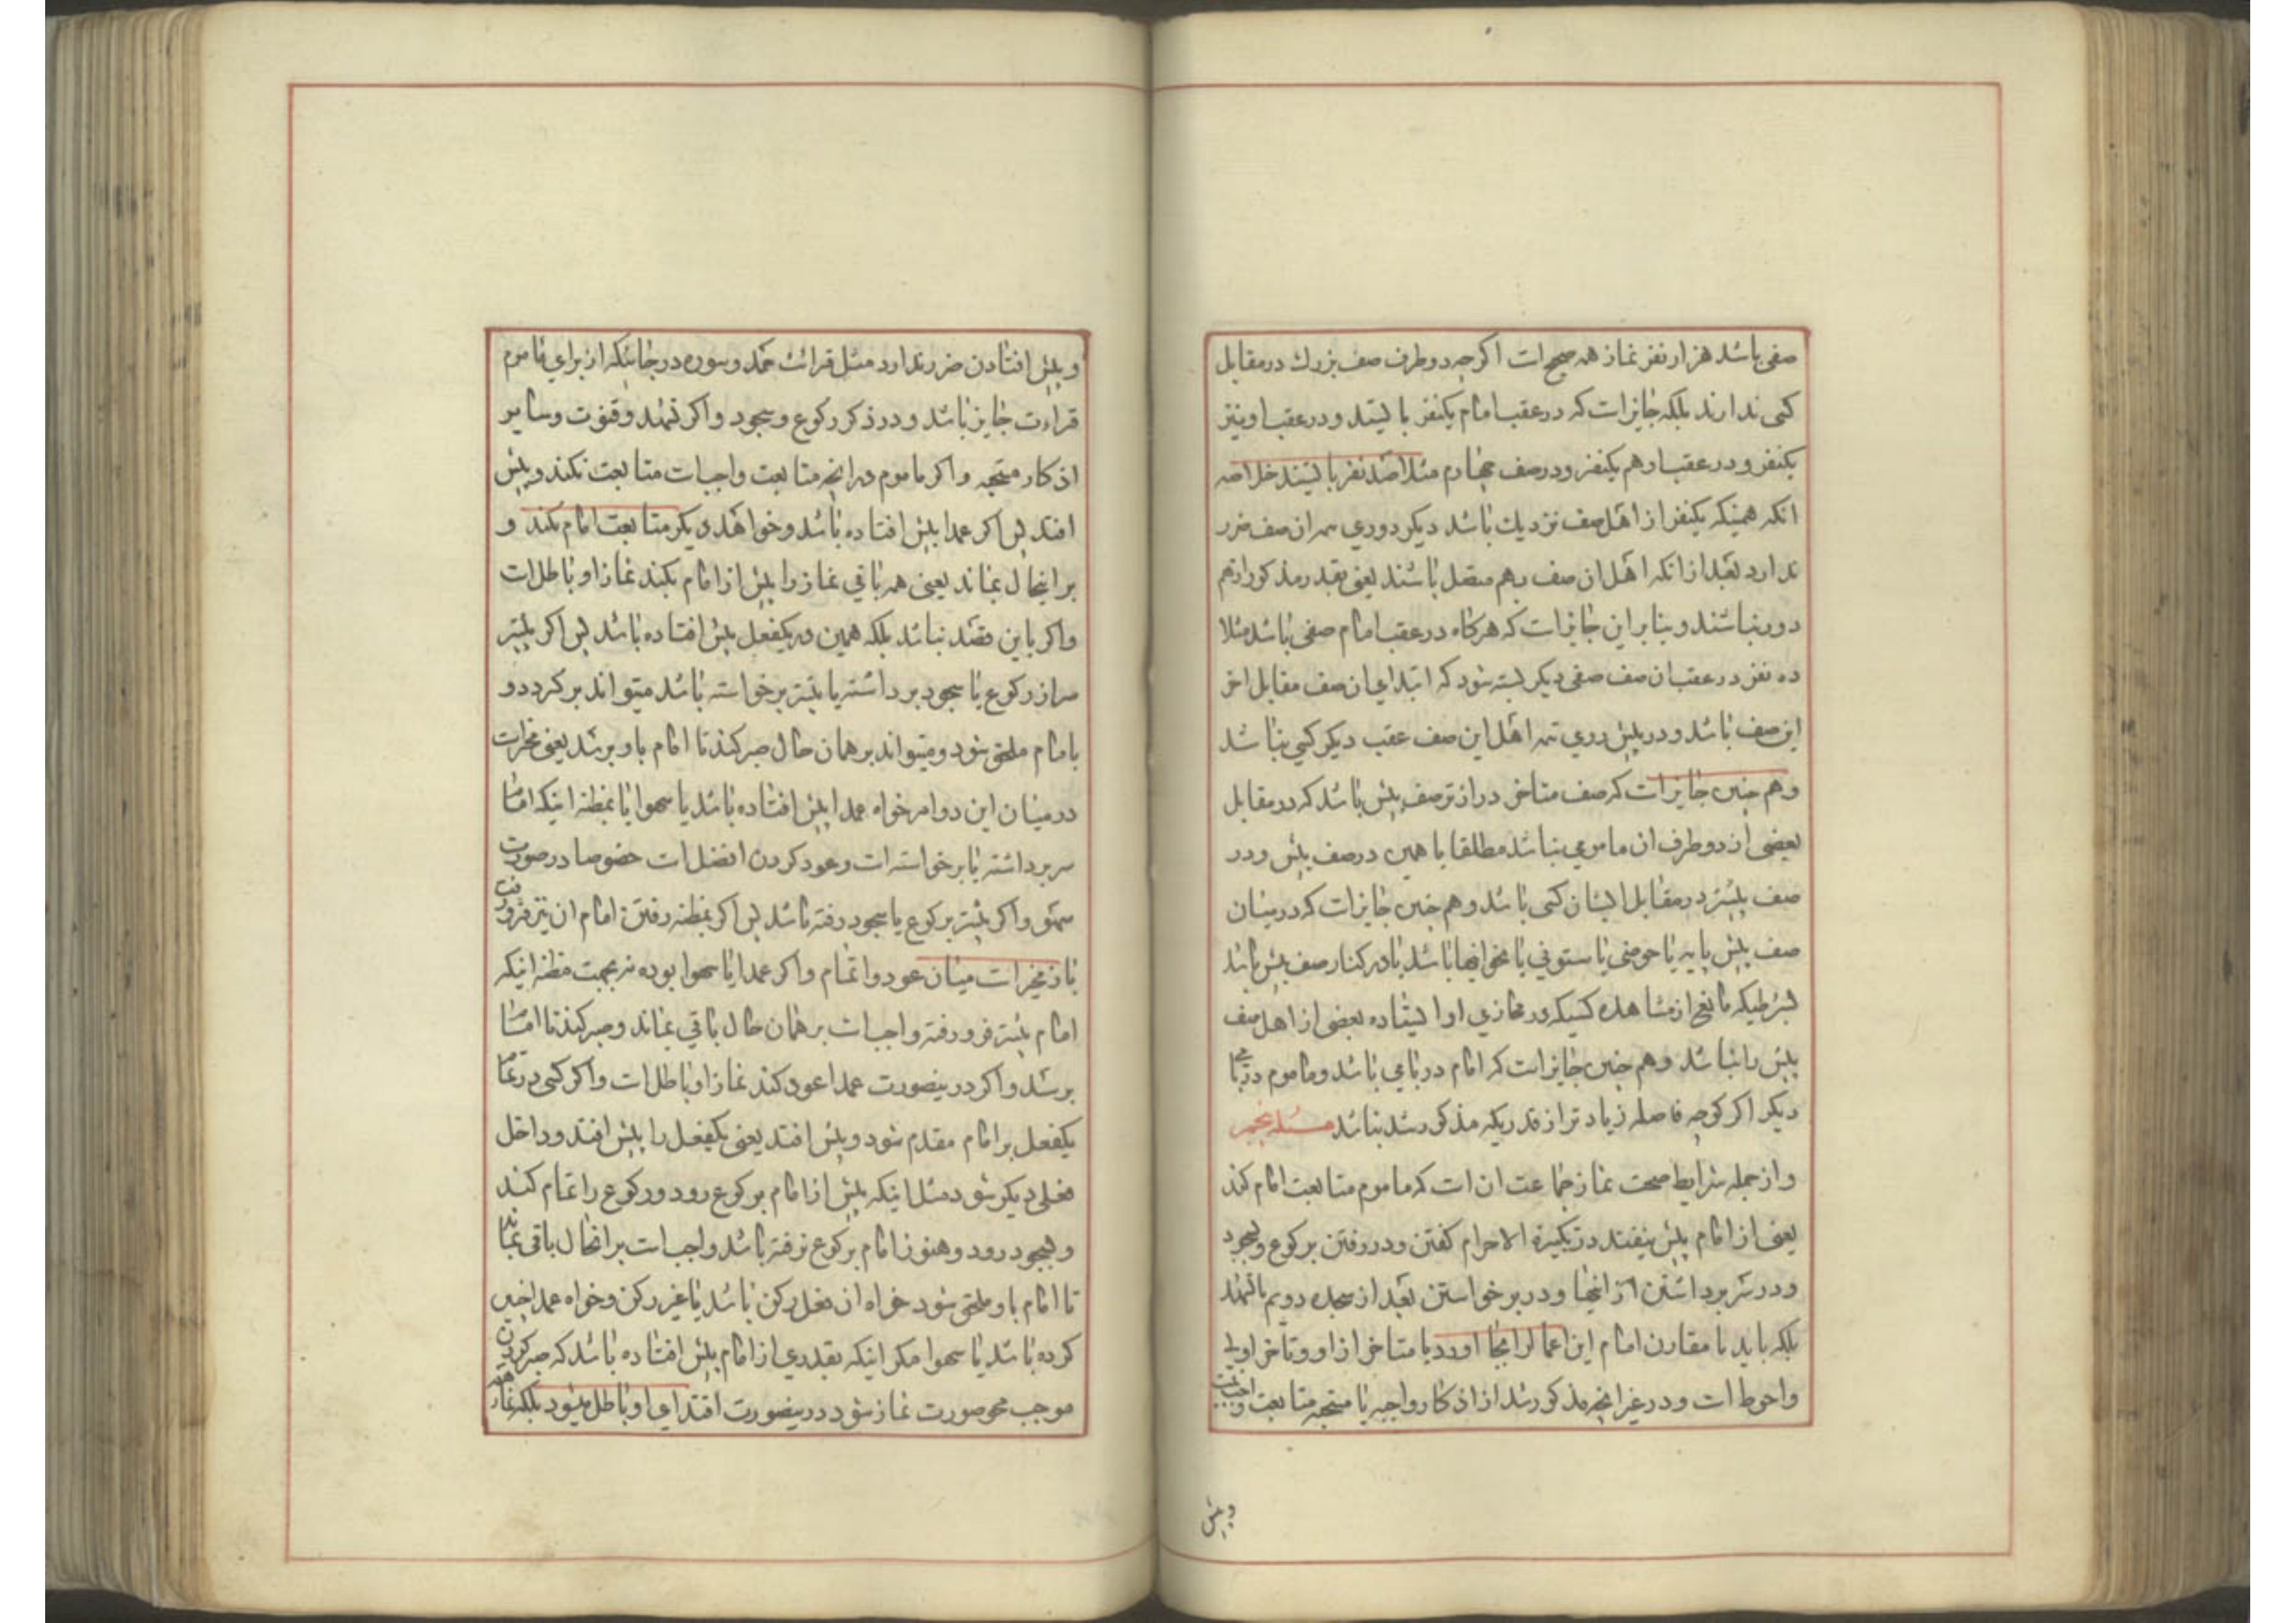 صفی باشد هزار نفر نماز همه صحیح است اکرچه دو طرف صف بزرك در مقابل
کسی ندارند بلکه جایز است که در عقب امام یکنفر بایستد و در عقب او نیز
یکنفر و در عقب او هم یکنفر و در صف چهارم مثلا صد نفر بایستند خلاصه
انکه همینکه یکنفر از اهل صف نزدیك باشد دیکر دوری سر ان صف ضرر
ندارد بعد از انکه اهل ان صف بهم متصل باشند یعنی بقدر مذکور از هم
دور نباشند و بنابر این جایز است که هرکاه در عقب امام صفی باشد مثلا
ده نفر در عقب ان صف صفی دیکر بسته شود که ابتدای ان صف مقابل اخر
این صف باشد و در پیش روی تتمه اهل این صف عقب دیکر کسی نباشد
و هم چنین جایز است که صف متاخر دراز تر صف پیش باشد که در مقابل
بعضی از دو طرف ان مامومی نباشد مطلقا یا همین در صف پیش و در
صف پیشتر در مقابل ایشان کسی باشد و هم چنین جایز است که در میان
صف پیش پایه یا حوضی یا ستونی یا نحو اینها باشد یا در کنار صف پیش باشد
بشرطیکه مانع از مشاهده کسیکه در محاذی او ایستاده بعضی از اهل صف
پیش را نباشد و هم چنین جایز است که امام در بامی باشد و ماموم در بامی
دیکر اکر کوچه فاصله زیاد تر از قدریکه مذکور شد نباشد مسئله پنجم
و از جمله شرایط صحت نماز جماعت ان است که ماموم متابعت امام کند
یعنی از امام پیش نیفتد در تکبیرة الاحرام کفتن و در رفتن برکوع و بسجود
و در سر برداشتن از اینها و در برخواستن بعد از سجده دویم یا تشهد
بلکه باید یا مقارن امام این اعمال را بجا اورد یا متاخر از او و تاخر اولی
و احوط است و در غیر انچه مذکور شد از اذکار واجبه یا مستحبه متابعت واجب نیست
و پیش
و پیش افتادن ضرر ندارد مثل قرائت حمد و سوره در جائیکه از برای ماموم
قراءت جایز باشد و در ذکر رکوع و سجود و اکر تشهد و قنوت و سایر
اذکار مستحبه و اکر ماموم در انچه متابعت واجب است متابعت نکند و پیش
افتد پس اکر عمدا پیش افتاده باشد و خواهد دیکر متابعت امام نکند و
بر اینحال بماند یعنی همه باقی نماز را پیش از امام بکند نماز او باطل است
و اکر باین قصد نباشد بلکه همین در یکفعل پیش افتاده باشد پس اکر پیشتر
سر از رکوع یا سجود برداشته یا پیشتر برخواسته باشد میتواند برکردد و
بامام ملحق شود و میتواند بر همان حال صبر کند تا امام باو برسد یعنی مخیر است
در میان این دو امر خواه عمدا پیش افتاده باشد یا سهوا یا بمظنه اینکه امام
سر برداشته یا برخواسته است و عود کردن افضل است خصوصا در صورت
سهو و اکر پیشتر برکوع یا سجود رفته باشد پس اکر بمظنه رفتن امام ان نیز فرو رفت
باز مخیر است میان عود و اتمام و اکر عمدا یا سهوا بوده نه بجهت مظنه اینکه
امام پیشتر فرو رفته واجب است بر همان حال باقی بماند و صبر کند تا امام
برسد و اکر در ینصورت عمدا عود کند نماز او باطل است و اکر کسی در تمام
یکفعل بر امام مقدم شود و پیش افتد یعنی یکفعل را پیش افتد و داخل
فعلی دیکر شود مثل اینکه پیش از امام برکوع رود و رکوع را تمام کند
و بسجود رود و هنوز امام برکوع نرفته باشد واجب است بر انحال باقی بماند
تا امام باو ملحق شود خواه ان فعل رکن باشد یا غیر رکن و خواه عمدا چنین
کرده باشد یا سهوا مکر اینکه بقدری از امام پیش افتاده باشد که صبر کردن
موجب محو صورت نماز شود در ینصورت اقتدای او باطل میشود بلکه نماز